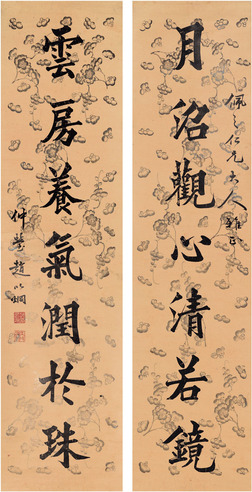 佩之仁兄大人雅正
月沼觀心清若鏡
雲房養氣潤於珠
仲瑩趙以炯